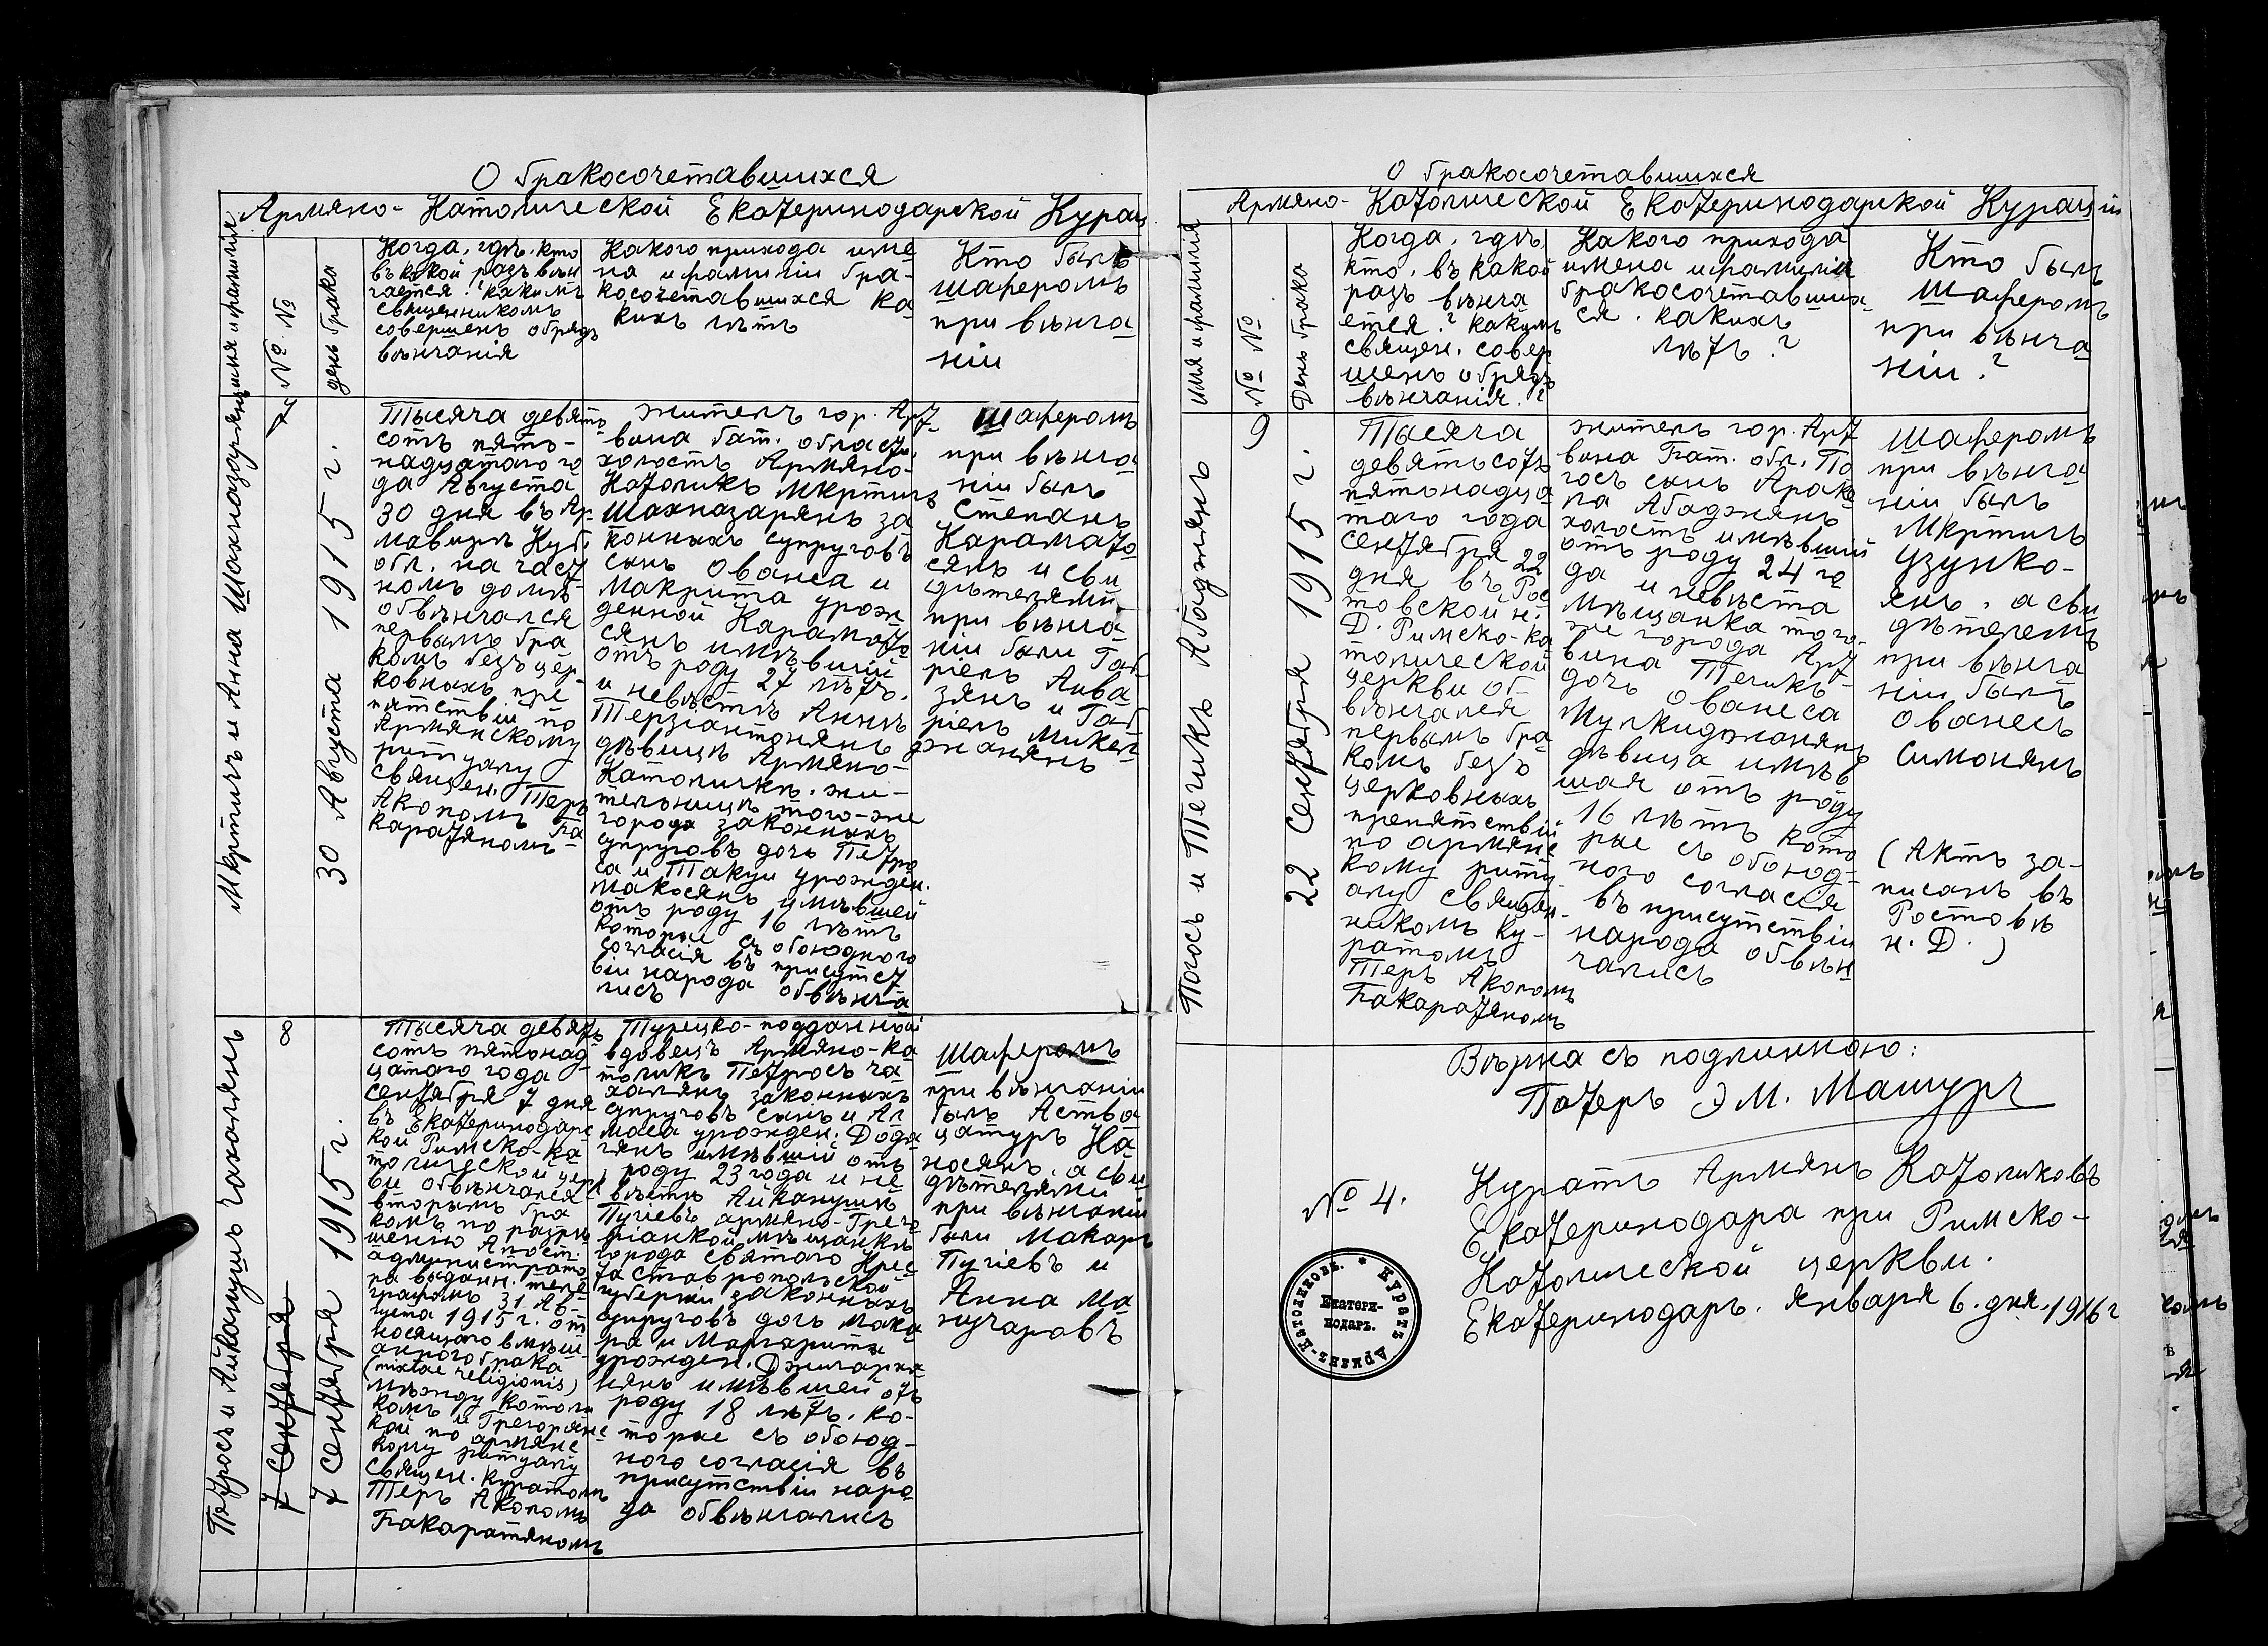 О бракосочетавшихся
Армяно- Католической Екатеринодарской Курац
имя и фамилія
№ №
день брака
Когда, гдѣ, кто
въ какой разъ вѣн
чается? какимъ
священникомъ
совершенъ обрядъ
вѣнчанія
Какого прихода име
на и фамиліи бра-
косочетавшихся ка
кихъ лѣтъ
Кто былъ
шаферомъ
при вѣнча
ніи
Мкртичъ и Анна Шахназарянъ
7
30 Августа 1915 г.
Тысяча девять
сотъ пять-
надцатаго го
да Августа
30 дня въ Ар-
мавирѣ Куб.
обл. на част
номъ домѣ
обвѣнчался
первымъ бра
комъ безъ цер
ковныхъ пре
пятствій по
Армянскому
ритуалу
священ. Теръ
Акопомъ Ба
каратяномъ
житель гор. Арт
вина бат. области,
холостъ Армяно-
Католикъ Мкртичъ
Шахназарянъ за
конныхъ супруговъ
сынъ Ованеса и
Макрита урож
денной Карамато
сянъ имѣвшій
отъ роду 27 лѣтъ.
и невѣстѣ Аннѣ
Терзіантонянъ
дѣвицѣ Армяно-
Католичкѣ. жи-
тельницѣ того-же
города законныхъ
супруговъ дочь Петро
са и Такуи урожден.
Макосянъ имѣвшей
отъ роду 16 лѣтъ
которые съ обоюднаго
согласія въ присутст
віи народа обвѣнча
лись
Шаферомъ
при вѣнча
ніи былъ
Степанъ
Карамато
сянъ и сви
дѣтелями
при вѣнча
ніи были Габ
ріель Айва
зянъ и Габ
ріель Микел
джанянъ
Петросъ и Айканушъ Чахолянъ
8
7 Сентября
7 Сентября 1915 г.
Тысяча девять
сотъ пятонад
цатого года
Сентября 7 дня
въ Екатеринодарс
кой Римско-ка
толической церк
ви обвѣнчался
вторымъ бра
комъ по разрѣ
шенію Апост.
администрато
ра выданн. теле
графомъ 31 Ав-
густа 1915 г. от
носящаго вмѣш
аннаго брака
(mixtae religionis)
между католи
комъ и Грегоріанс
кой по армянс
кому ритуалу
Священ. Куратомъ
Теръ Акопомъ
Бакаратяномъ
Турецко-подданной
вдовецъ Армяно-ка
толикъ Петросъ ча
холянъ законныхъ
супруговъ сынъ и Ал
маса урожден. Дода
гянъ имѣвшій отъ
роду 23 года и не
вѣстѣ Айканушѣ
Пугіевъ армяно-Грего
ріанкой мѣщанкѣ
города Святого Крес
та Ставропольской
губерніи законныхъ
супруговъ дочь Мака
ра и Маргариты
урожден. Джигарха
нянъ имѣвшей отъ
роду 18 лѣтъ. ко-
торые съ обоюд-
ного согласія въ
присутствіи наро
да обвѣнчались
Шаферомъ
при вѣнчаніи
былъ Аства
цатуръ На
носянъ, а сви
дѣтелями
при вѣнчаніи
были Макаръ
Пугіевъ и
Анна Ма
нучаровъ
О бракосочетавшихся
Армяно- Католической Екатеринодарской Кураціи
имя и фамилія
№ №
День брака
Когда, гдѣ,
кто, въ какой
разъ вѣнча
ется? какимъ
священ. совер
шенъ обрядъ
вѣнчанія?
Какого прихода
имена и фамиліи
бракосочетавших
ся. какихъ
лѣтъ?
Кто былъ
Шаферомъ
при вѣнча
ніи?
Погосъ и Тегикъ Абаджянъ
9
22 Сентября 1915 г.
Тысяча
девятьсотъ
пятьнадца
таго года
Сентября 22
дня въ Рос
товской н.
Д. Римско-ка
толической
церкви об-
вѣнчался
первымъ бра
комъ безъ
церковныхъ
препятствій
по армянс
кому риту
алу священ-
никомъ Ку-
ратомъ
Теръ Акопомъ
Бакаратяномъ
житель гор. Арт
вина Бат. обл. По
госъ сынъ Араке
ла Абаджянъ
холостъ имѣвшій
отъ роду 24 го
да и невѣста
мѣщанка того-
же города Арт
вина Тегикъ
дочь Ованеса
Мулкиджанянъ
дѣвица имѣв
шая отъ роду
16 лѣтъ кото
рые съ обоюд-
ного согласія
въ присутствіи
народа обвѣн
чались
Шаферомъ
при вѣнча
ніи былъ
Мкртичъ
Узунко-
янъ, а сви
дѣтелемъ
при вѣнча
ніи былъ
Ованесъ
Симонянъ
(Актъ за-
писанъ въ
Ростовѣ
н. Д.)
Вѣрна съ подлинною:
Патеръ Э. М. Машуръ
№ 4.
Куратъ Армянъ Католиковъ
Екатеринодара при Римско-
Католической церкви.
Екатеринодаръ. Января 6. дня. 1916 г
* Куратъ Армянъ-Католиковъ.
Екатери-
нодаръ.